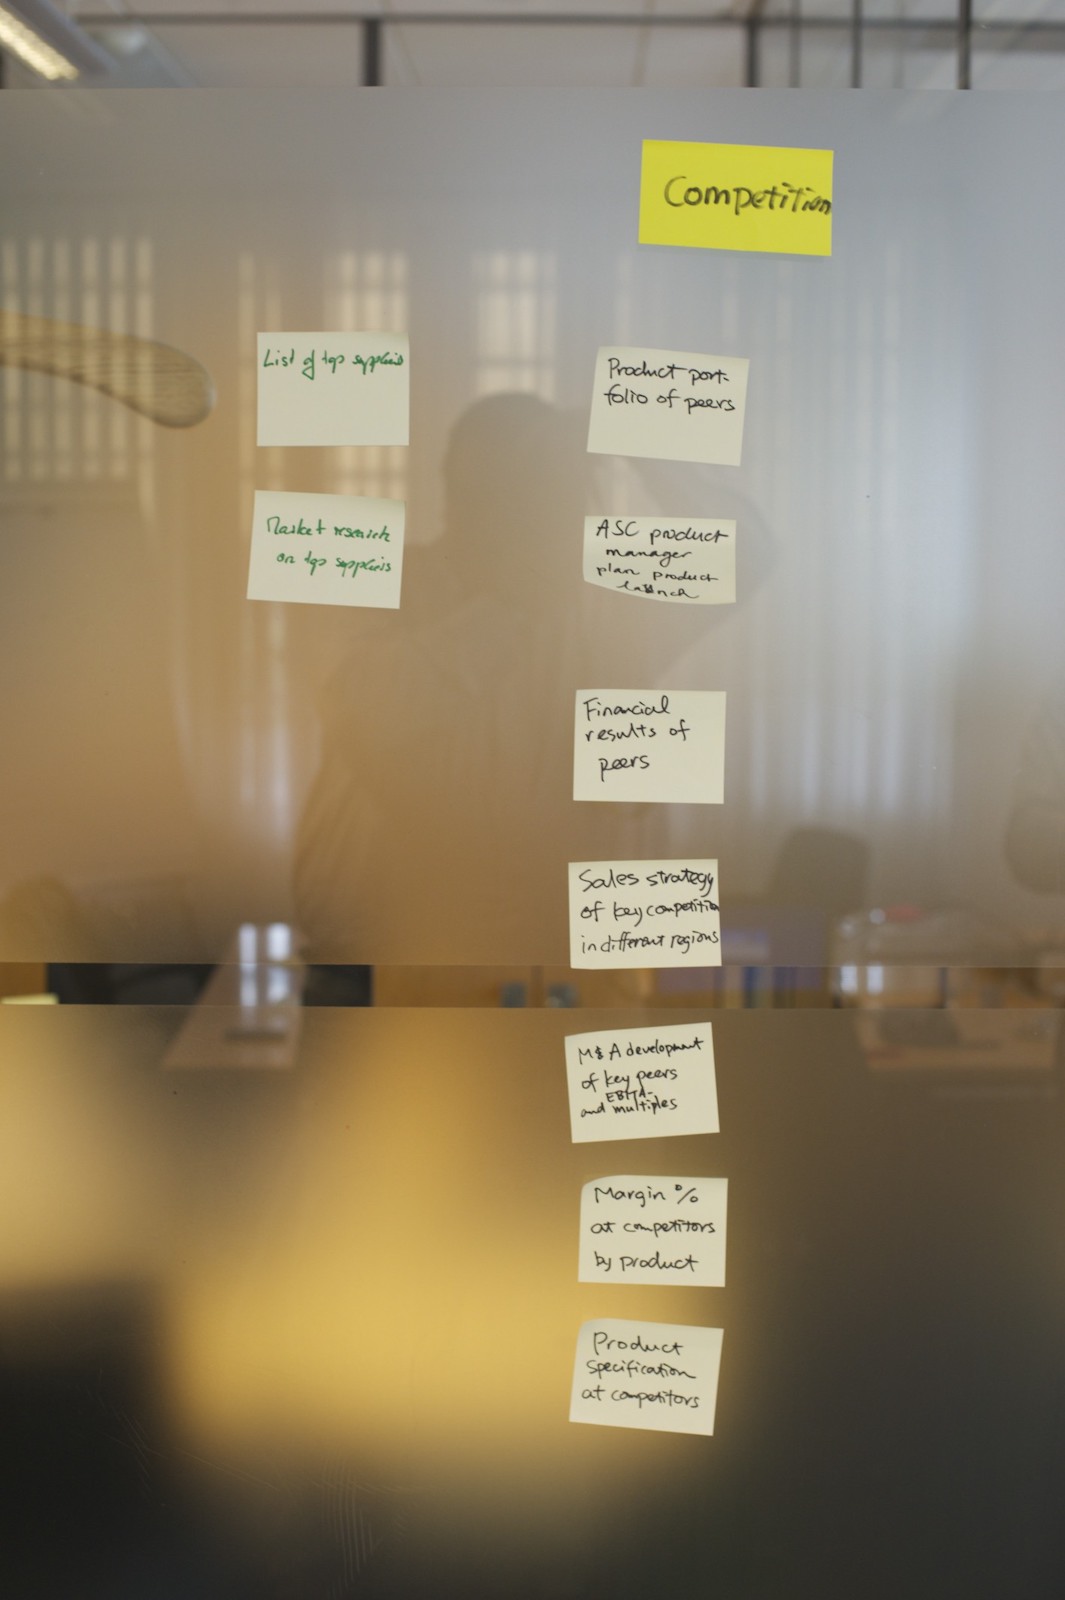 Competition
List of top suppliers
Market research
on top suppliers
Product port-
folio of peers
ASC product
manager
plan product
launch
Financial
results of
peers
Sales strategy
of key competition
in different regions
M&A development
of key peers
EBITA-
and multiples
Margin %
at competitors
by product
Product
specification
at competitors